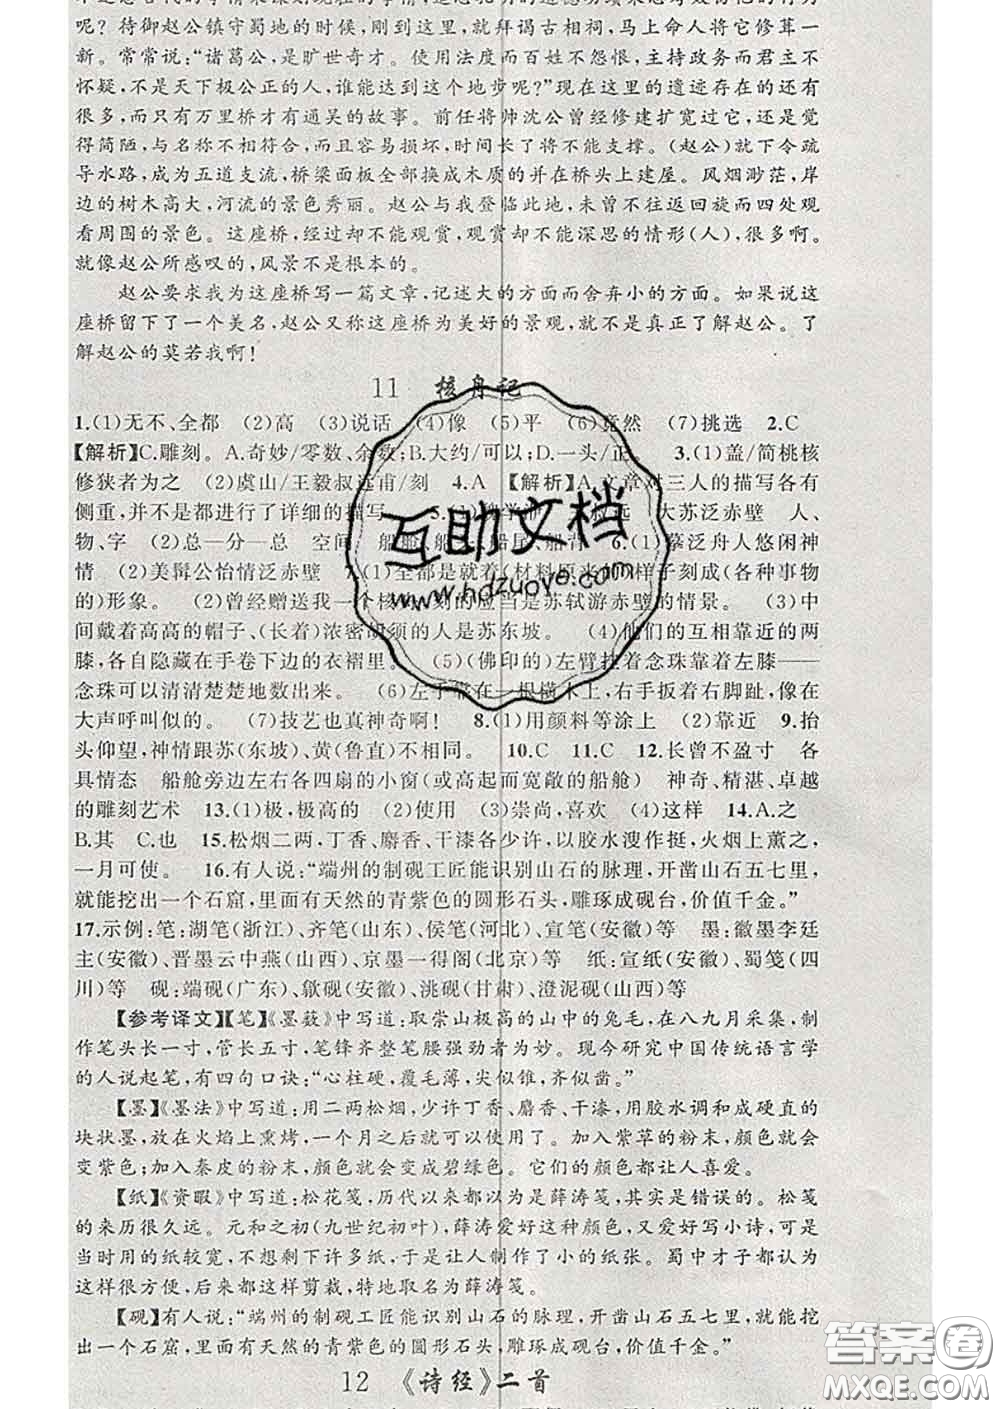 呢？待御赵公镇守蜀地的时候,刚到这里,就拜谒古相祠,马上命人将它修葺一
新。常常说:“诸葛公,是旷世奇才。使用法度而百姓不怨恨,主持政务而君主不
怀疑,不是天下极公正的人,谁能达到这个地步呢?”现在这里的遗迹存在的还有
很多,只有万里桥才有通吴的故事。前任将帅沈公曾经修建扩宽过它,还是觉
得简陋,与名称不相符合,而且容易损坏,时间长了将不能支撑。(赵公)就下令疏
导水路,成为五道支流,桥梁面板全部换成木质的并在桥头上建屋。风烟渺茫,岸
边的树木高大,河流的景色秀丽。赵公与我登临此地,未曾不往返回旋而四处观
看周围的景色。这座桥,经过却不能观赏,观赏却不能深思的情形(人),很多啊。
就像赵公所感叹的,风景不是根本的。
赵公要求我为这座桥写一篇文章,记述大的方面而舍弃小的方面。如果说这
座桥留下了一个美名,赵公又称这座桥为美好的景观,就不是真正了解赵公。了
解赵公的莫若我啊!
11 核舟记
1.(1)无不、全都 (2)高 (3)说话 (4)像 (5)平 (6)竟然 (7)挑选 2.C
【解析】C.雕刻。A.奇妙/零数、余数;B.大约/可以;D.一头/正。 3.(1)盖/简桃核
修狭者为之 (2)虞山/王毅叔远甫/刻 4.A 【解析】A.文章对三人的描写各有
侧重,并不是都进行了详细的描写。 5.(1) 叔远 大苏泛赤壁 人、
物、字 (2)总—分—总 空间 船舱、船头、船尾、船背 6.(1)摹泛舟人悠闲神
情 (2)美髯公怡情泛赤壁 7.(1)全都是就着(材料原来)的样子刻成(各种事物
的)形象。 (2)曾经赠送我一个核舟,刻的应当是苏轼游赤壁的情景。 (3)中
间戴着高高的帽子、(长着)浓密胡须的人是苏东坡。 (4)他们的互相靠近的两
膝,各自隐藏在手卷下边的衣褶里。 (5)(佛印的)左臂挂着念珠靠着左膝——
念珠可以清清楚楚地数出来。 (6)左手靠在一根横木上,右手扳着右脚趾,像在
大声呼叫似的。 (7)技艺也真神奇啊! 8.(1)用颜料等涂上 (2)靠近 9.抬
头仰望,神情跟苏(东坡)、黄(鲁直)不相同。 10.C 11.C 12.长曾不盈寸 各
具情态 船舱旁边左右各四扇的小窗(或高起而宽敞的船舱) 神奇、精湛、卓越
的雕刻艺术 13.(1)极,极高的 (2)使用 (3)崇尚,喜欢 (4)这样 14.A.之
B.其 C.也 15.松烟二两,丁香、麝香、干漆各少许,以胶水溲作挺,火烟上薰之,
一月可使。 16.有人说:“端州的制砚工匠能识别山石的脉理,开凿山石五七里,
就能挖出一个石窟,里面有天然的青紫色的圆形石头,雕琢成砚台,价值千金。”
17.示例:笔:湖笔(浙江)、齐笔(山东)、侯笔(河北)、宣笔(安徽)等 墨:徽墨李廷
主(安徽)、晋墨云中燕(山西)、京墨一得阁(北京)等 纸:宣纸(安徽)、蜀笺(四
川)等 砚:端砚(广东)、歙砚(安徽)、洮砚(甘肃)、澄泥砚(山西)等
【参考译文】【笔】《墨薮》中写道:取崇山极高的山中的兔毛,在八九月采集,制
作笔头长一寸,管长五寸,笔锋齐整笔腰强劲者为妙。现今研究中国传统语言学
的人说起笔,有四句口诀:“心柱硬,覆毛薄,尖似锥,齐似凿。”
【墨】《墨法》中写道:用二两松烟,少许丁香、麝香、干漆,用胶水调和成硬直的
块状墨,放在火焰上熏烤,一个月之后就可以使用了。加入紫草的粉末,颜色就会
变紫色;加入秦皮的粉末,颜色就会变成碧绿色。它们的颜色都让人喜爱。
【纸】《资暇》中写道:松花笺,历代以来都以为是薛涛笺,其实是错误的。松笺
的来历很久远。元和之初(九世纪初叶),薛涛爱好这种颜色,又爱好写小诗,可是
当时的纸较宽,不想剩下许多纸,于是让人制作了小的纸张。蜀中才子都认为
这样很方便,后来都这样剪裁,特地取名为薛涛笺。
【砚】有人说:“端州的制砚工匠能识别山石的脉理,开凿山石五七里,就能挖
出一个石窟,里面有天然的青紫色的圆形石头,雕琢成砚台,价值千金。”
12 《诗经》二首
互助文档
www.hdzuoye.com
答案圈
MXQE.COM